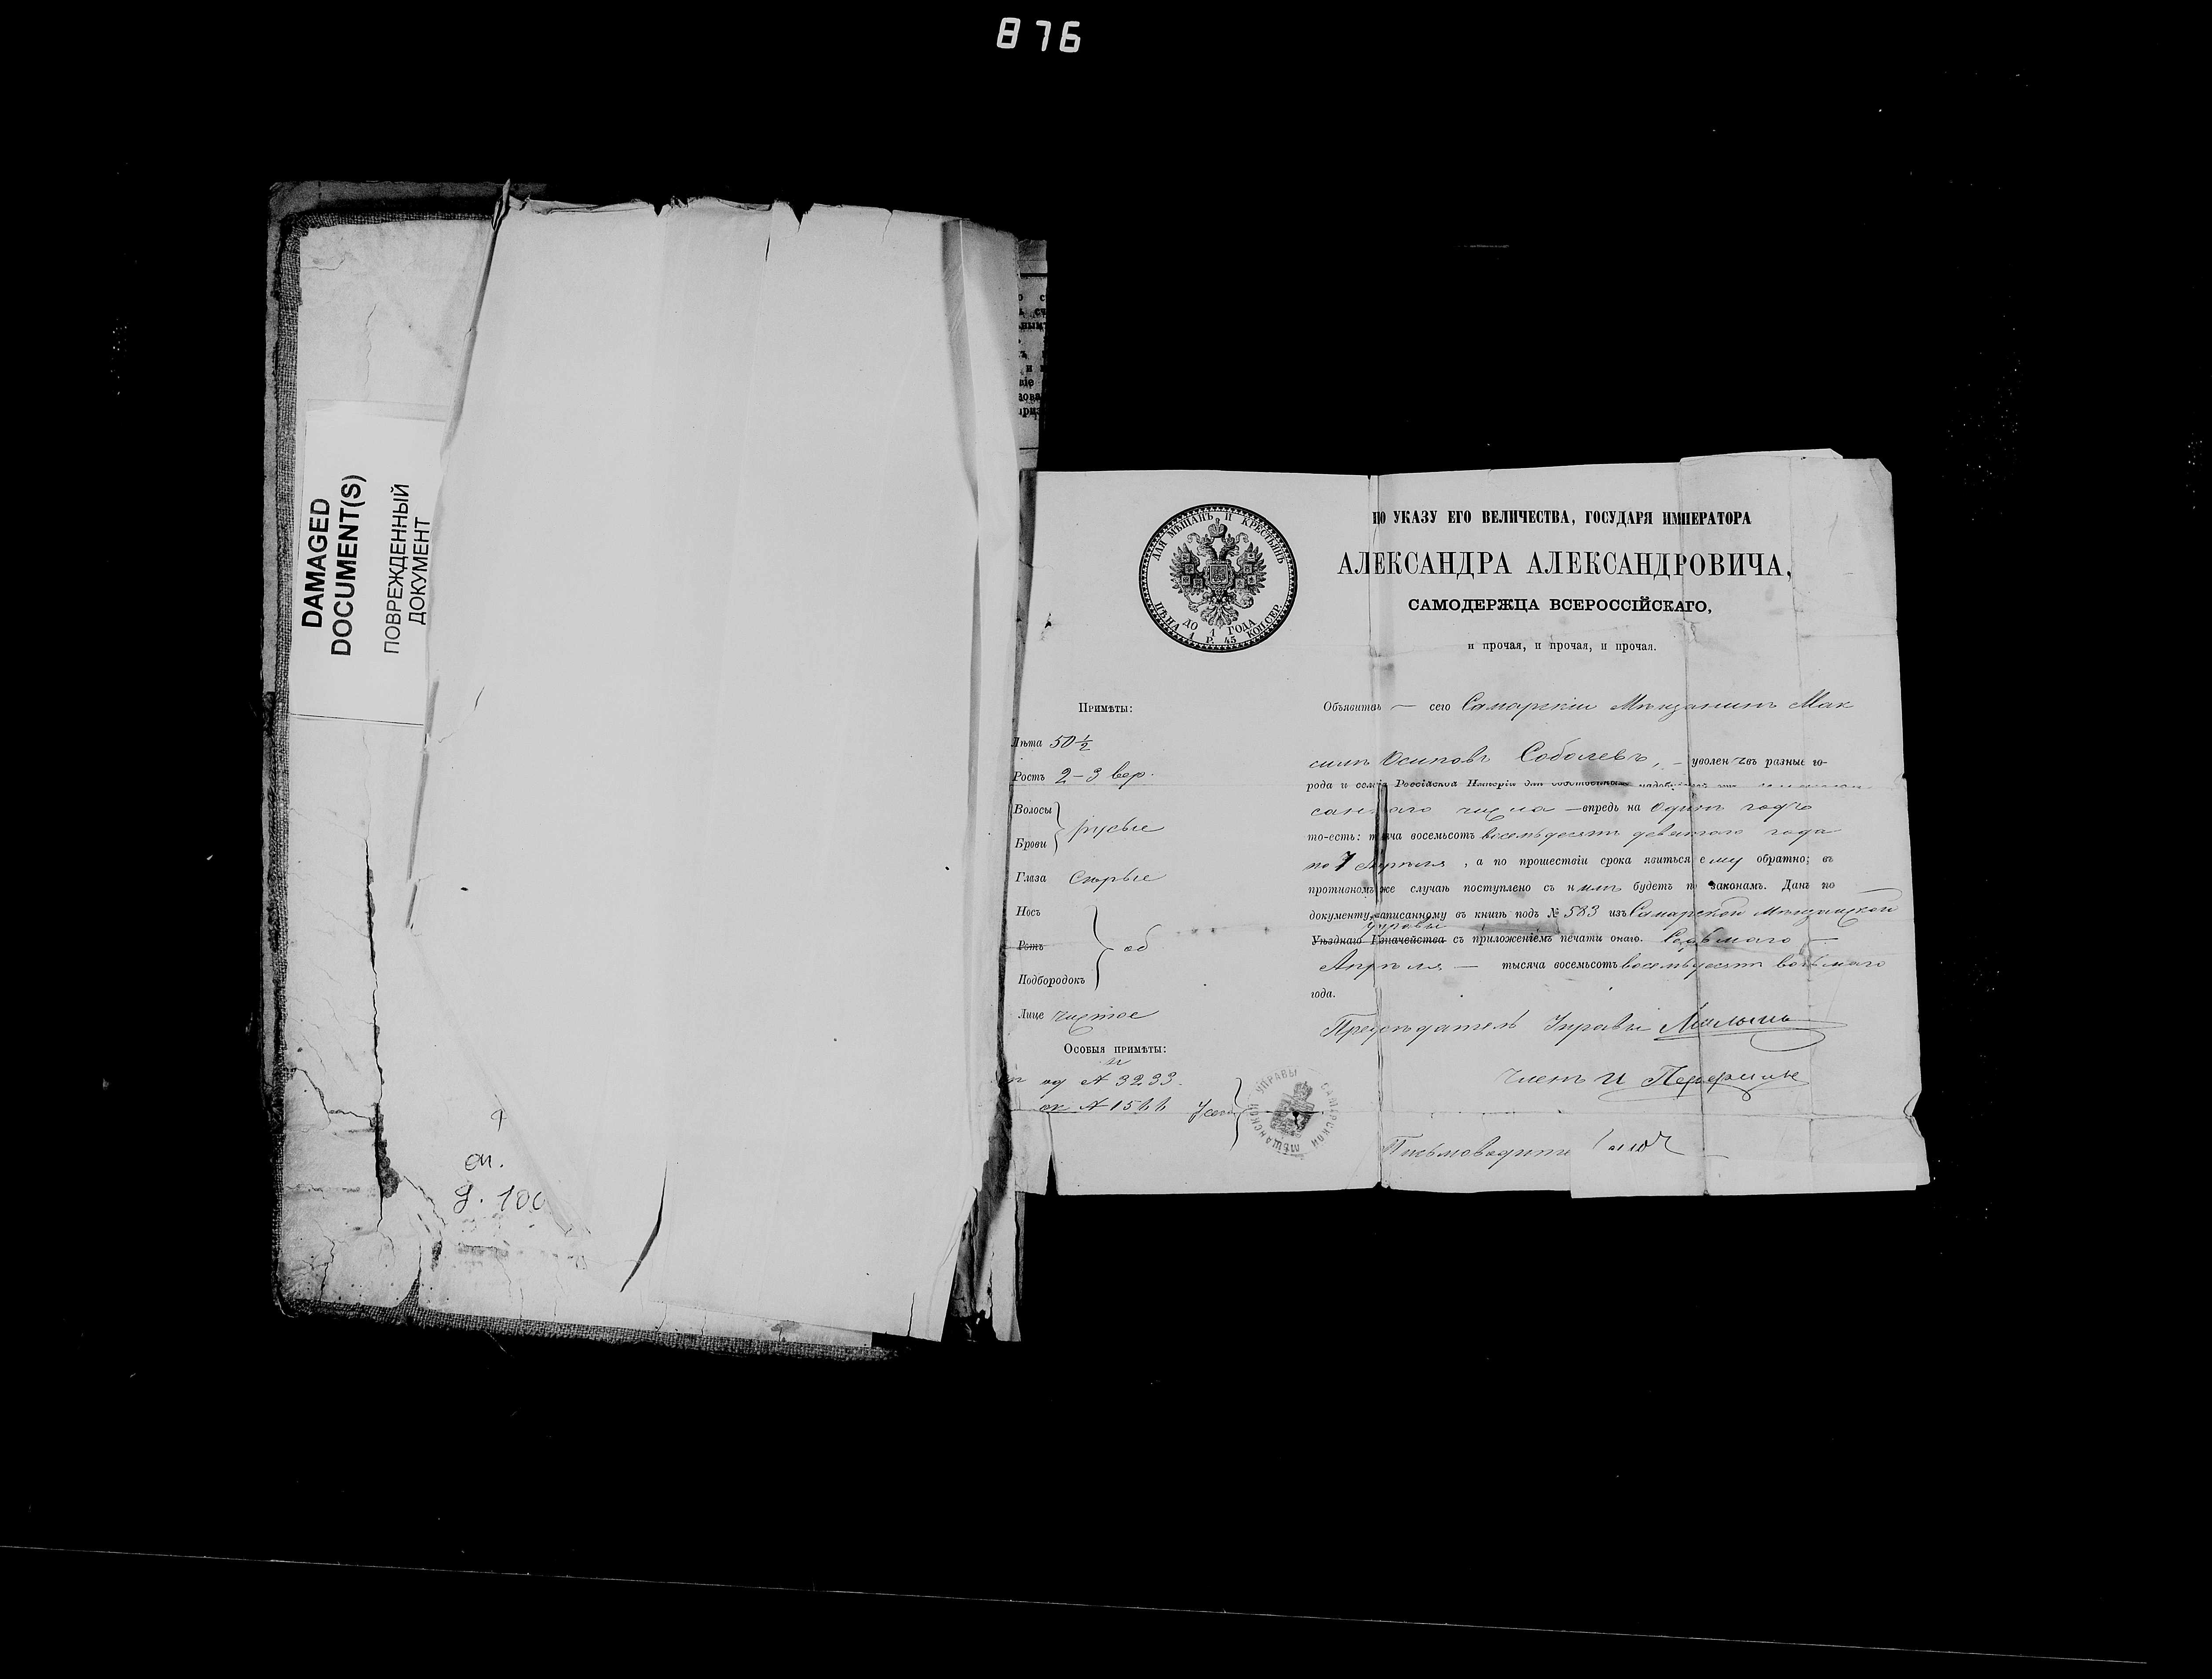 876
DAMAGED
DOCUMENT(S)
ПОВРЕЖДЕННЫЙ
ДОКУМЕНТ
оп.
д. 100
ДЛЯ МѢЩАНЪ И КРЕСТЬЯНЪ
ДО 1 ГОДА
ЦѢНА 1 Р. 45 КОП. СЕР.
ПО УКАЗУ ЕГО ВЕЛИЧЕСТВА, ГОСУДАРЯ ИМПЕРАТОРА
АЛЕКСАНДРА АЛЕКСАНДРОВИЧА,
САМОДЕРЖЦА ВСЕРОССІЙСКАГО,
и прочая, и прочая, и прочая.
Примѣты:
Лѣта 50 ½
Ростъ 2-3 вер.
Волосы
Брови русые
Глаза Сѣрые
Носъ
Ротъ об
Подбородокъ
Лице чистое
Особыя примѣты:
№ 3233.
Объявитель сего Самарскій Мѣщанинъ Мак
симъ Осиповъ Соболевъ, – уволенъ въ разные го-
рода и селенія Россійской Имперіи для собственных надобностей
саннаго числа – впредь на Одинъ годъ
то-есть: тысяча восемьсотъ восемьдесятъ девятаго года
по 7 Апрѣля, а по прошествіи срока явиться ему обратно; въ
противномъ же случаѣ поступлено съ нимъ будетъ по законамъ. Данъ по
документу, записанному въ книгѣ подъ № 583 изъ Самарской Мѣщанской
Управы
Уѣзднаго Казначейства съ приложеніемъ печати онаго. Седьмаго –
Апрѣля – тысяча восемьсотъ восемьдесятъ восьмаго
года.
Предсѣдатель Управы
Членъ И
САМАРСКОЙ МѢЩАНСКОЙ УПРАВЫ
Письмоводите